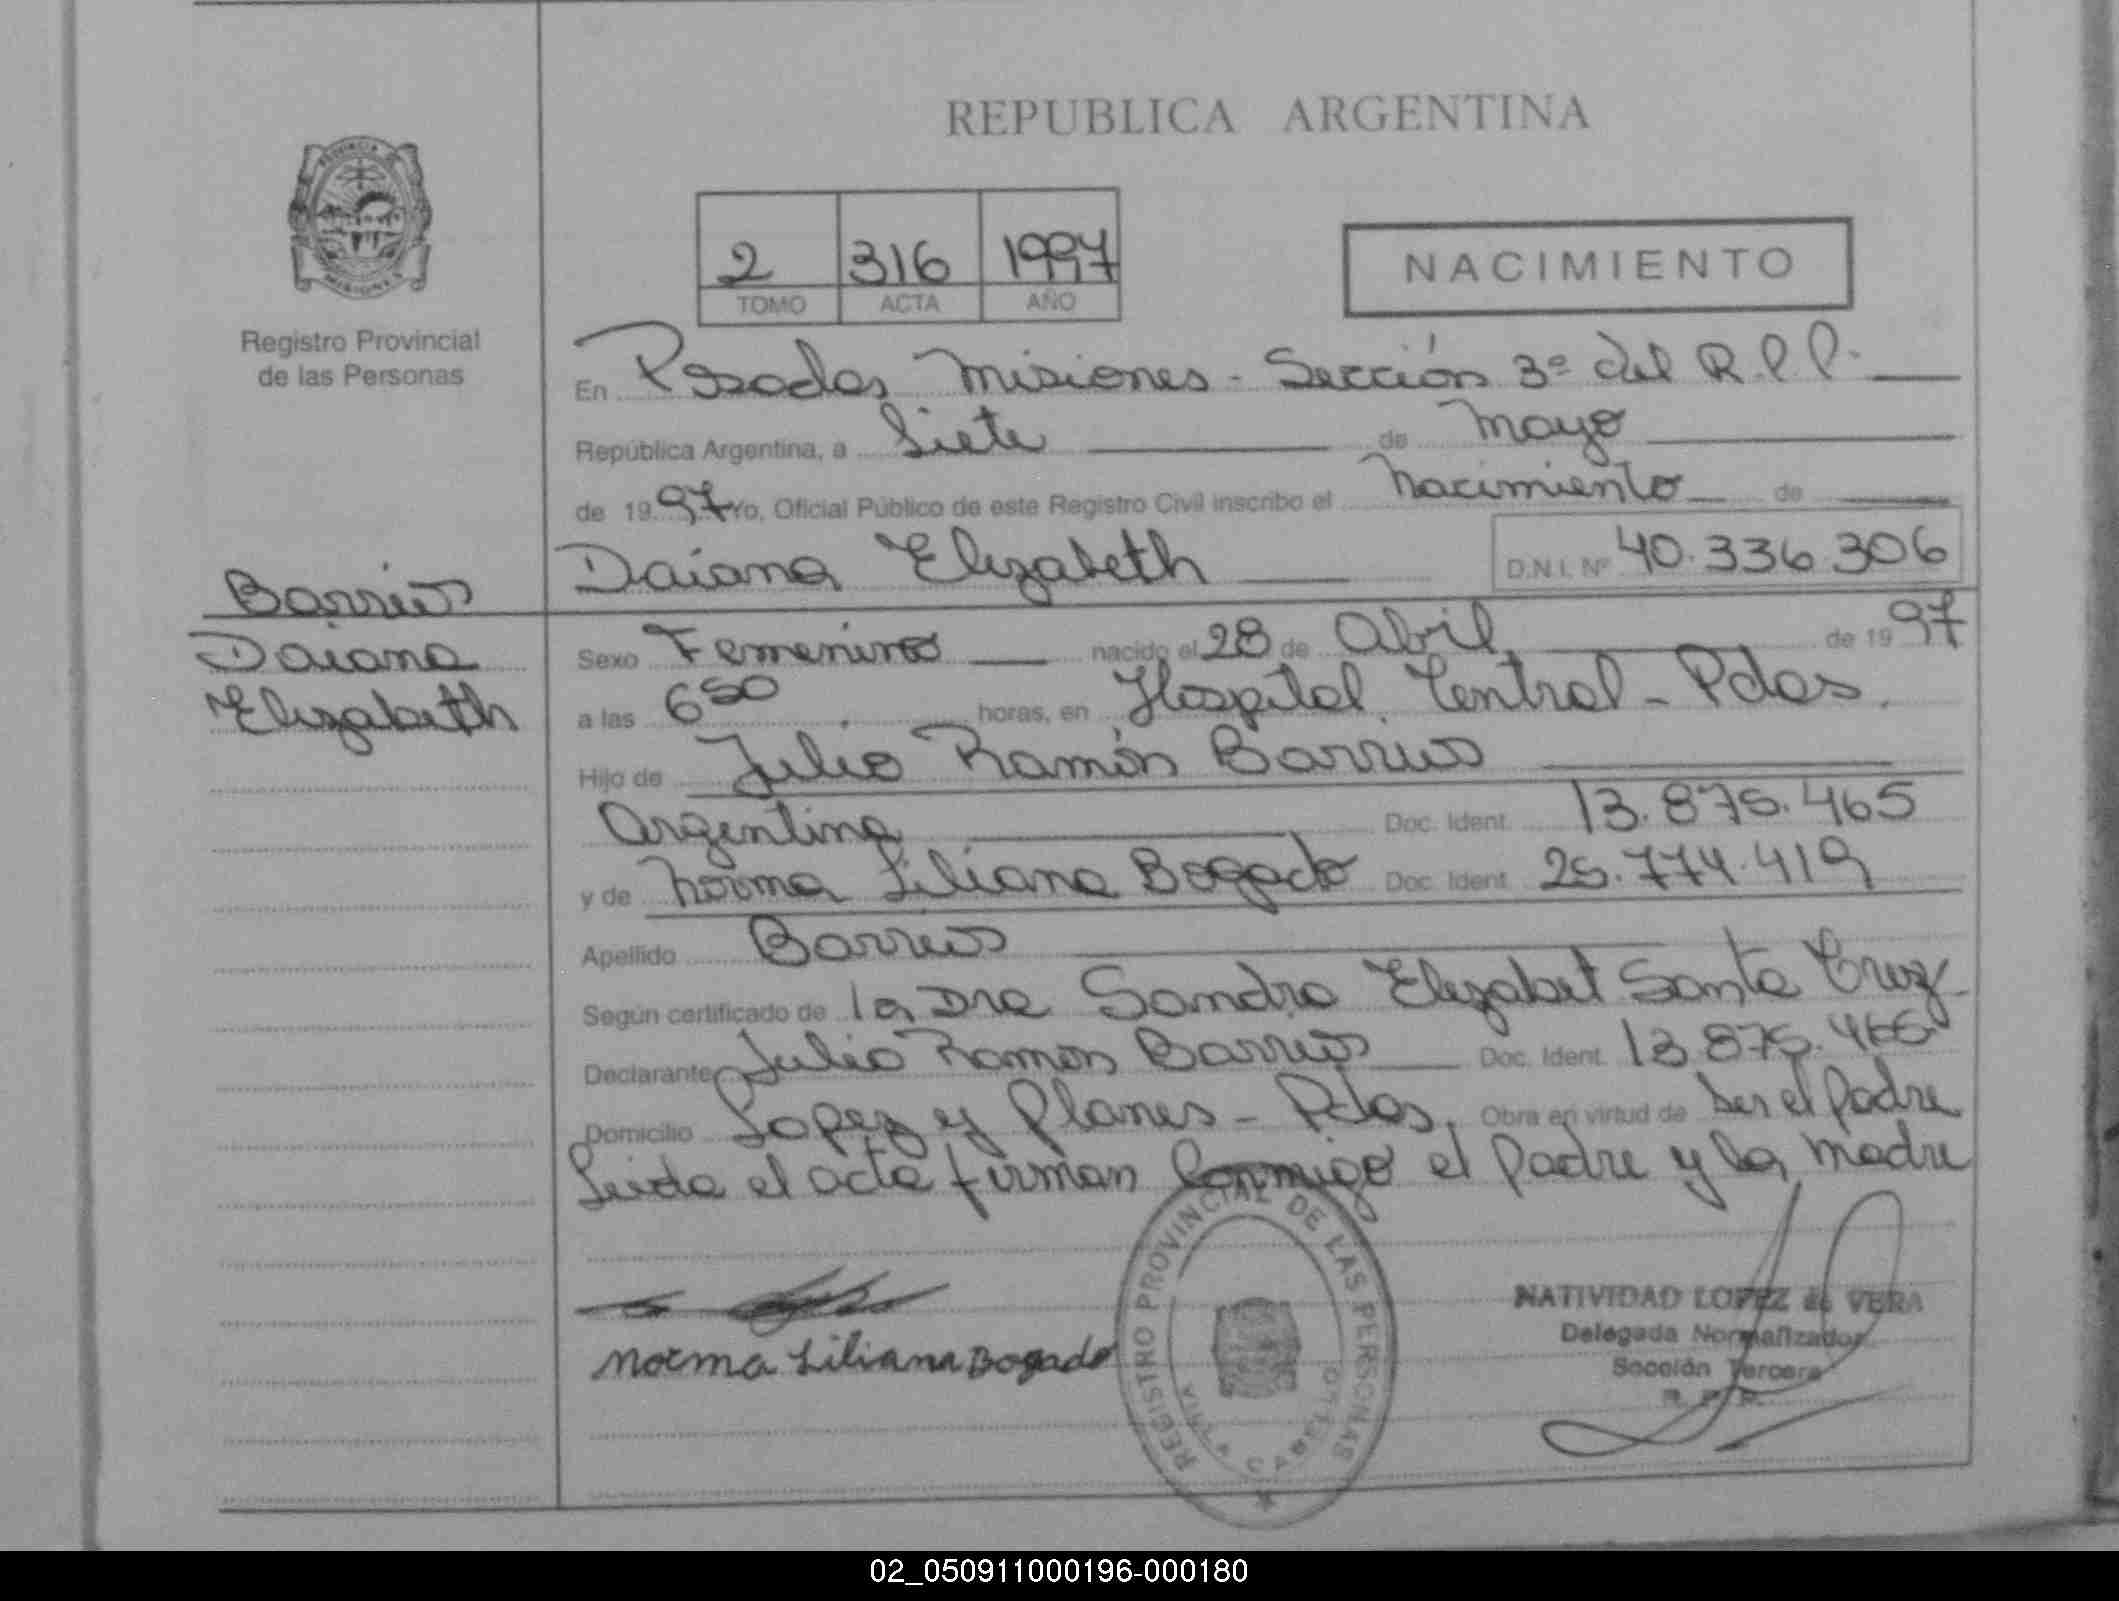 REPUBLICA ARGENTINA
2 316 1997
TOMO ACTA AÑO
NACIMIENTO
Registro Provincial
de las Personas
En Posadas Misiones - Sección 3ª del R.P.P.
República Argentina, a Siete de Mayo
de 1997 Yo, Oficial Público de este Registro Civil inscribo el Nacimiento de
Daiana Elizabeth D.N.I. Nº 40.336.306
Barrios
Daiana
Elizabeth
Sexo Femenino nacido el 28 de Abril de 1997
a las 6 50 horas, en Hospital Central - Pdas.
Hijo de Julio Ramón Barrios
Argentina Doc. Ident. 13.875.465
y de Norma Liliana Bogado Doc. Ident. 25.774.419
Apellido Barrios
Según certificado de la Dra Sandra Elizabet Santa Cruz
Declarante Julio Ramon Barrios Doc. Ident. 13.875.465
Domicilio Lopez y Planes - Pdas. Obra en virtud de ser el padre
Leida el acta firman conmigo el padre y la madre
Norma Liliana Bogado
REGISTRO PROVINCIAL DE LAS PERSONAS
NATIVIDAD LOPEZ de VERA
Delegada Normalizador
Sección Tercera
R. P. P.
02_050911000196-000180